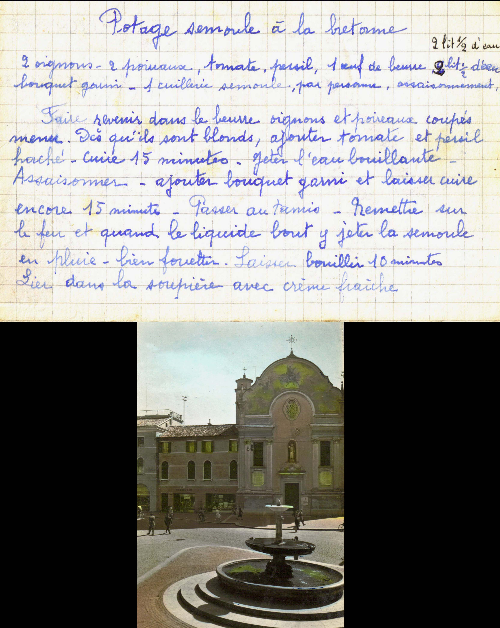 Potage semoule à la bretonne
2 lit 1/2 d'eau
2 oignons - 2 poireaux, tomate, persil, 1 œuf de beurre 2 lit 1/2 d'eau
bouquet garni - 1 cuillerie semoule, par personne, assaisonnement,
Faire revenir dans le beurre oignons et poireaux coupés
menu. Dès qu'ils sont blonds, ajouter tomate et persil
haché - cuire 15 minutes - jeter l'eau bouillante -
Assaisonner - ajouter bouquet garni et laisser cuire
encore 15 minutes - Passer au tamis - Remettre sur
le feu et quand le liquide bout y jeter la semoule
en pluie - bien fouetter. Laisser bouillir 10 minutes
Lier dans la soupière avec crème fraîche